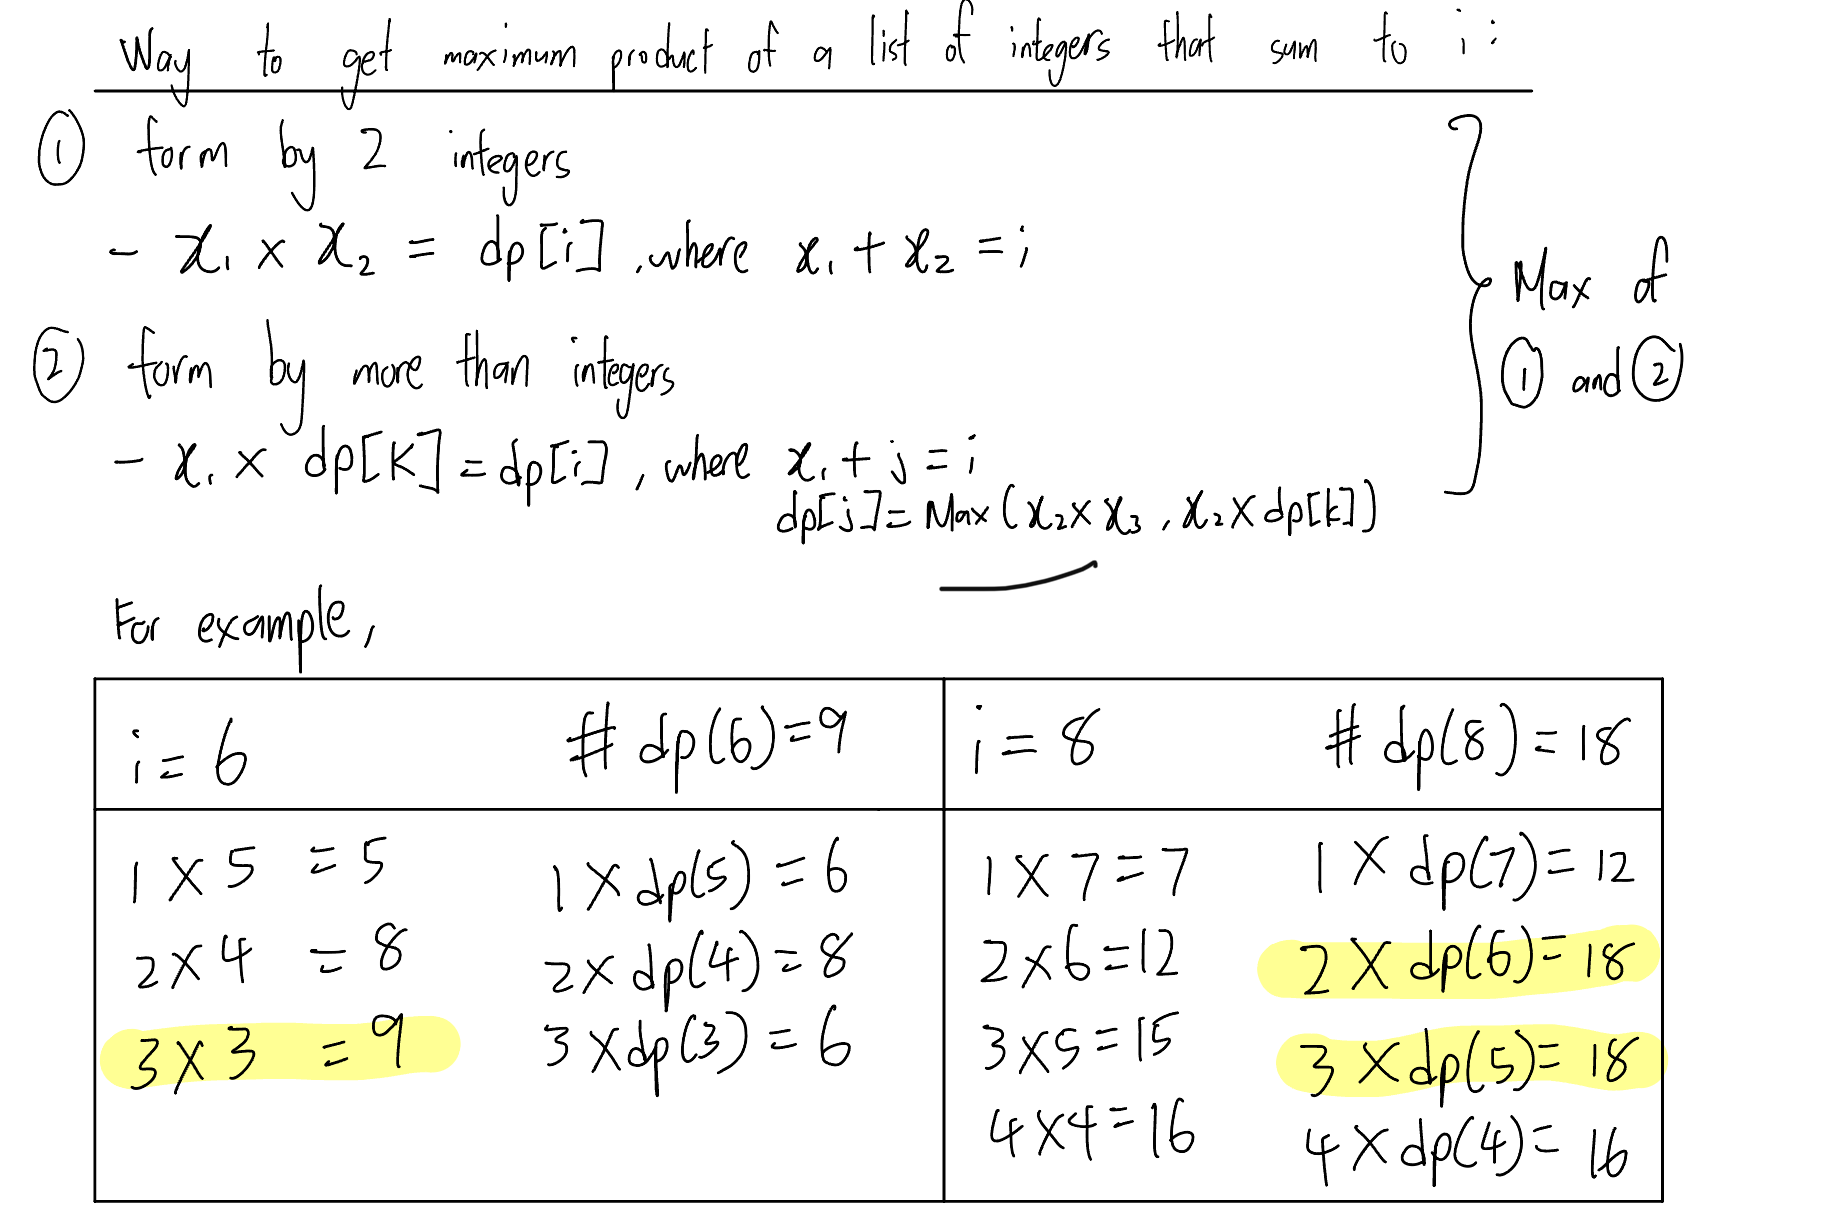 Way to get maximum product of a list of integers that sum to i :
① form by 2 integers
- x₁ × x₂ = dp[i] , where x₁ + x₂ = i
② form by more than integers
- x₁ × dp[K] = dp[i] , where x₁ + j = i
dp[j] = Max (x₂ × x₃ , x₂ × dp[k])
Max of
① and ②
For example,
i = 6 # dp(6)=9 i = 8 # dp(8) = 18
1 × 5 = 5 1 × dp(5) = 6 1 × 7 = 7 1 × dp(7) = 12
2 × 4 = 8 2 × dp(4) = 8 2 × 6 = 12 2 × dp(6) = 18
3 × 3 = 9 3 × dp(3) = 6 3 × 5 = 15 3 × dp(5) = 18
4 × 4 = 16 4 × dp(4) = 16